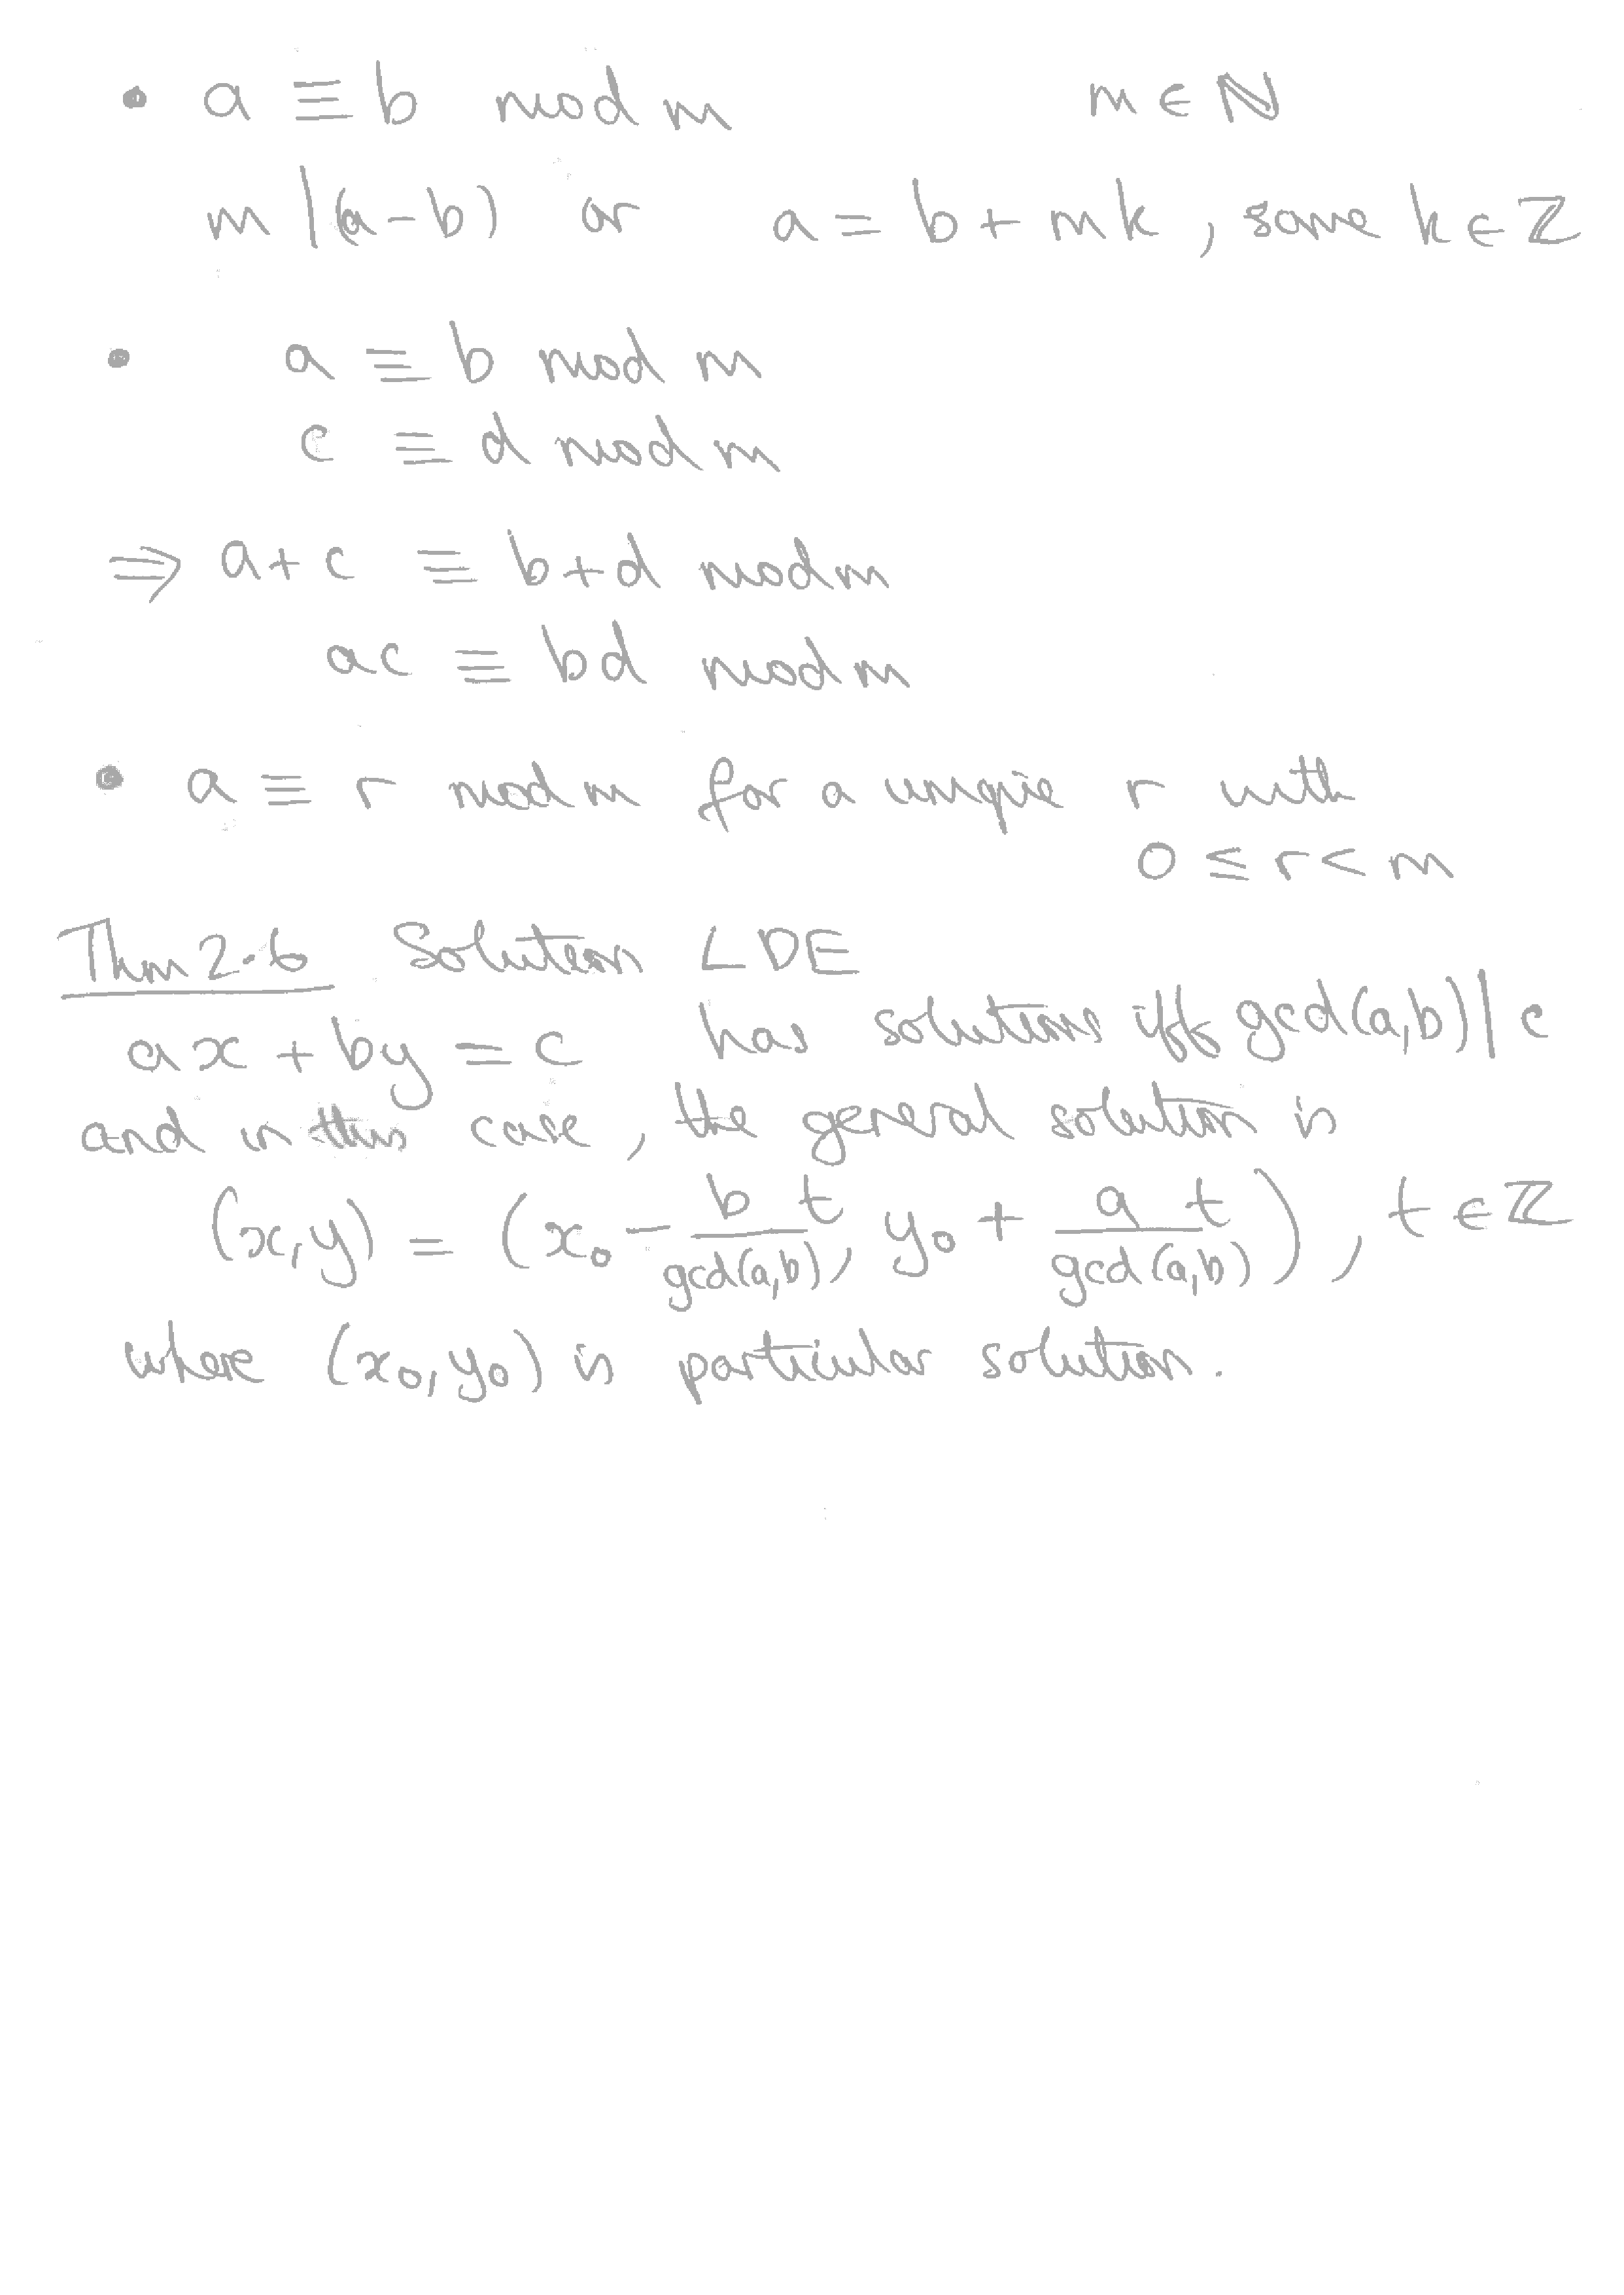 • a ≡ b mod m m ∈ ℕ
m | (a-b) or a = b + mk, some k ∈ ℤ
• a ≡ b mod m
c ≡ d mod m
⇒ a+c ≡ b+d mod m
ac ≡ bd mod m
• a ≡ r mod m for a unique r with
0 ≤ r < m
Thm 2.6 Solution LDE
ax + by = c has solutions iff gcd(a,b) | c
and in this case, the general solution is
(x,y) = (x₀ - b t / gcd(a,b), y₀ + a t / gcd(a,b)), t ∈ ℤ
where (x₀,y₀) is particular solution.